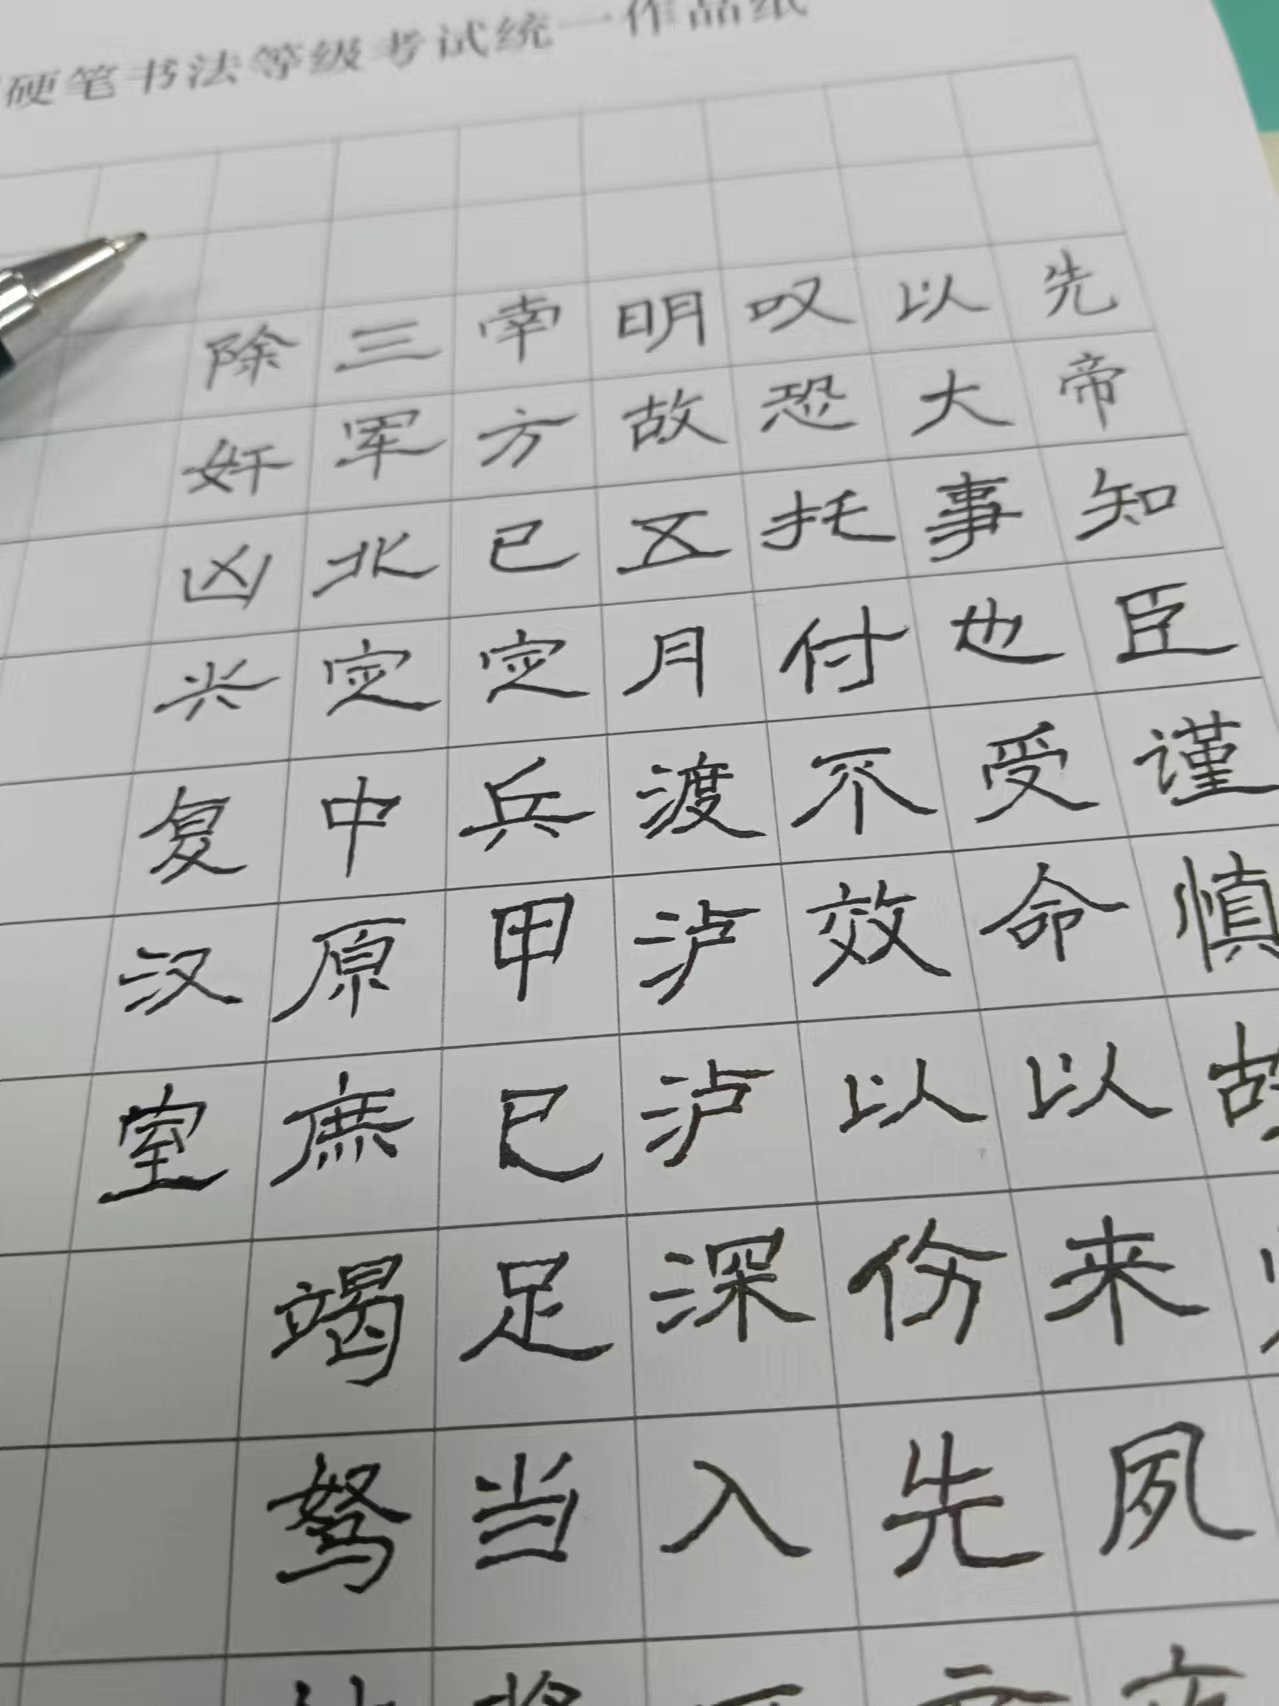 硬笔书法等级考试统一作品纸
先帝知臣谨慎故
以大事也受命以来夙
叹恐托付不效以伤先
明故五月渡泸泸深入
南方已定兵甲已足当
三军北定中原庶竭驽
除奸凶兴复汉室